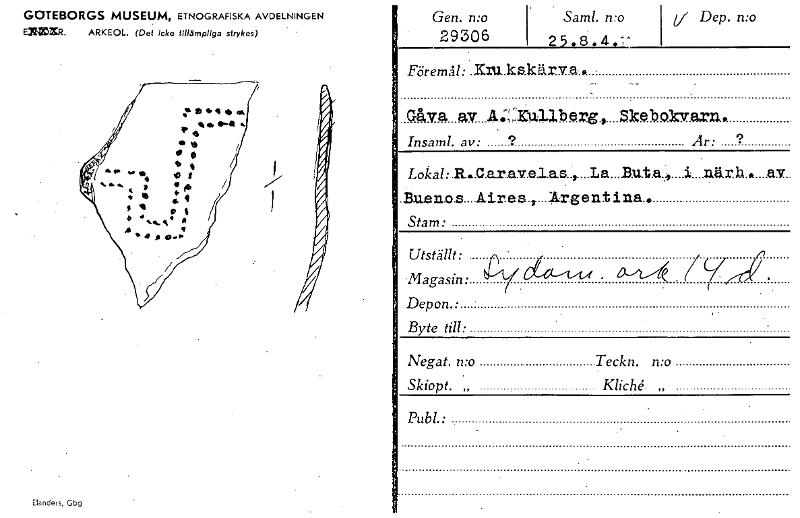 GÖTEBORGS MUSEUM, ETNOGRAFISKA AVDELNINGEN
ARKEOL. (Det icke tillämpliga strykes)
Elanders, Gbg
Gen. n:o Saml. n:o Dep. n:o
29306 25.8.4.
Föremål: Krukskärva.
Gåva av A. Kullberg, Skebokvarn.
Insaml. av: ? År: ?
Lokal: R.Caravelas, La Buta, i närh. av
Buenos Aires, Argentina.
Stam:
Utställt:
Magasin: Sydam. ark 14 d.
Depon.:
Byte till:
Negat. n:o Teckn. n:o
Skiopt. „ Kliché „
Publ.: